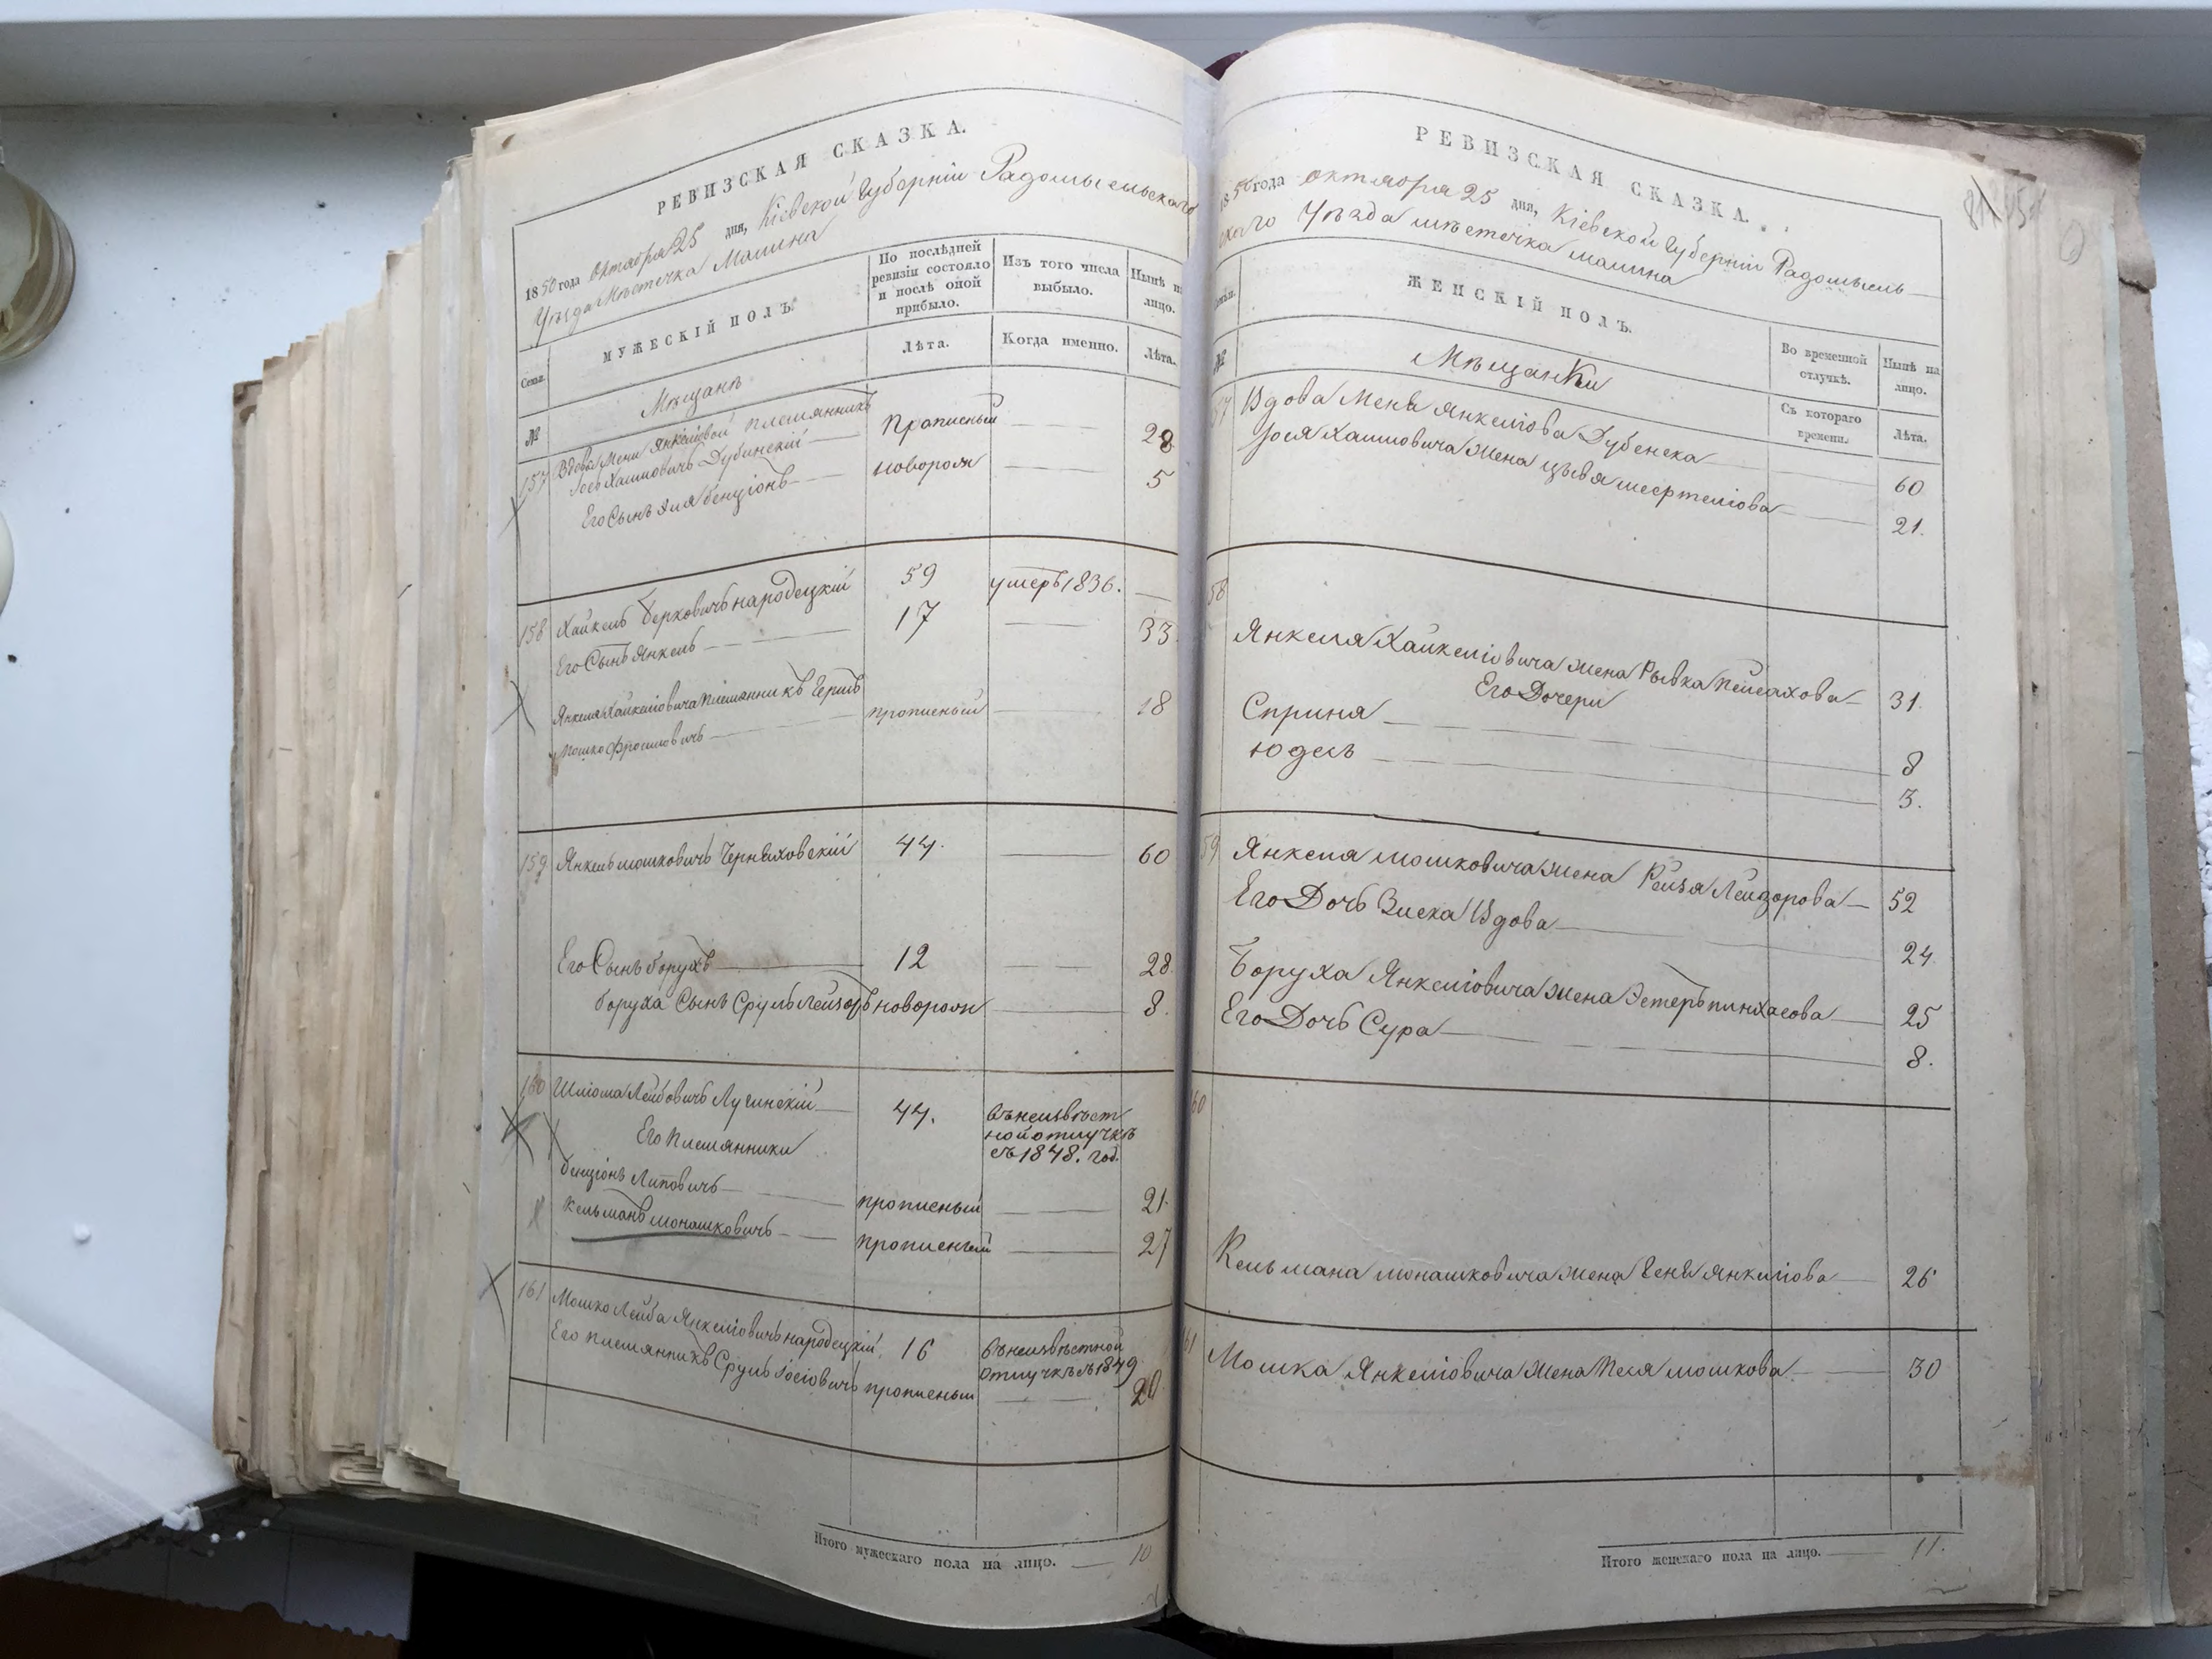 РЕВИЗСКАЯ СКАЗКА.
1850 года Октября 25 дня, Кіевской Губерніи Радомысльскаго
Уѣзда Мѣстечка Малина
Семьи.
МУЖЕСКІЙ ПОЛЪ.
По послѣдней ревизіи состояло и послѣ оной прибыло.
Изъ того числа выбыло.
Нынѣ на лицо.
№
Лѣта.
Когда именно.
Лѣта.
Мѣщанѣ
157 Вдовы Мени Янкелiовой племянникъ
Іось Хаимовичъ Дубинскій Прописный 28
Его Сынъ Эля Бенціонъ новорожн 5
158 Хайкель Берковичъ Народецкій 59 умеръ 1836.
Его Сынъ Янкель 17 33
Янкеля Хайкелiовича племянникъ Гершъ
Мошко Фроимовичъ прописный 18
159 Янкель Мошковичъ Черняховскій 44. 60
Его Сынъ Борухъ 12 28
Боруха Сынъ Сруль Лейзоръ новорожн 8.
160 Шлiома Лейбовичъ Лугинскій 44. въ неизвѣст
ной отлучкѣ
съ 1848. год.
Его Племянники
Бенціонъ Липовичъ прописный 21.
Кельманъ Монашковичъ прописный 27
161 Мошко Лейба Янкелiовичъ Народецкій 16 въ неизвѣстной
отлучкѣ съ 1849
Его племянникъ Сруль Іосiовичъ прописный 20
Итого мужескаго пола на лицо. 10
РЕВИЗСКАЯ СКАЗКА.
1850 года октября 25 дня, Кіевской Губерніи Радомысль
скаго Уѣзда мѣстечка малина
Семьи.
ЖЕНСКІЙ ПОЛЪ.
Во временной отлучкѣ.
Нынѣ на лицо.
№
Съ котораго времени.
Лѣта.
Мѣщанки
57 Вдова Меня Янкелiова Дубенска 60
Іося Хаимовича жена Цывя Шефтелiова 21.
58
Янкеля Хайкелiовича жена Рывка Пейсахова 31.
Его Дочери
Сприня 8
Юдесь 3.
59 Янкеля Мошковича жена Рейзя Лейзорова 52
Его Дочь Зиска Вдова 24
Боруха Янкелiовича жена Эстеръ Пинхасова 25
Его Дочь Сура 8.
60
Кельмана Монашковича жена Геня Янкелiова 26
61 Мошка Янкелiовича жена Песя Мошкова 30
Итого женскаго пола на лицо. 11.